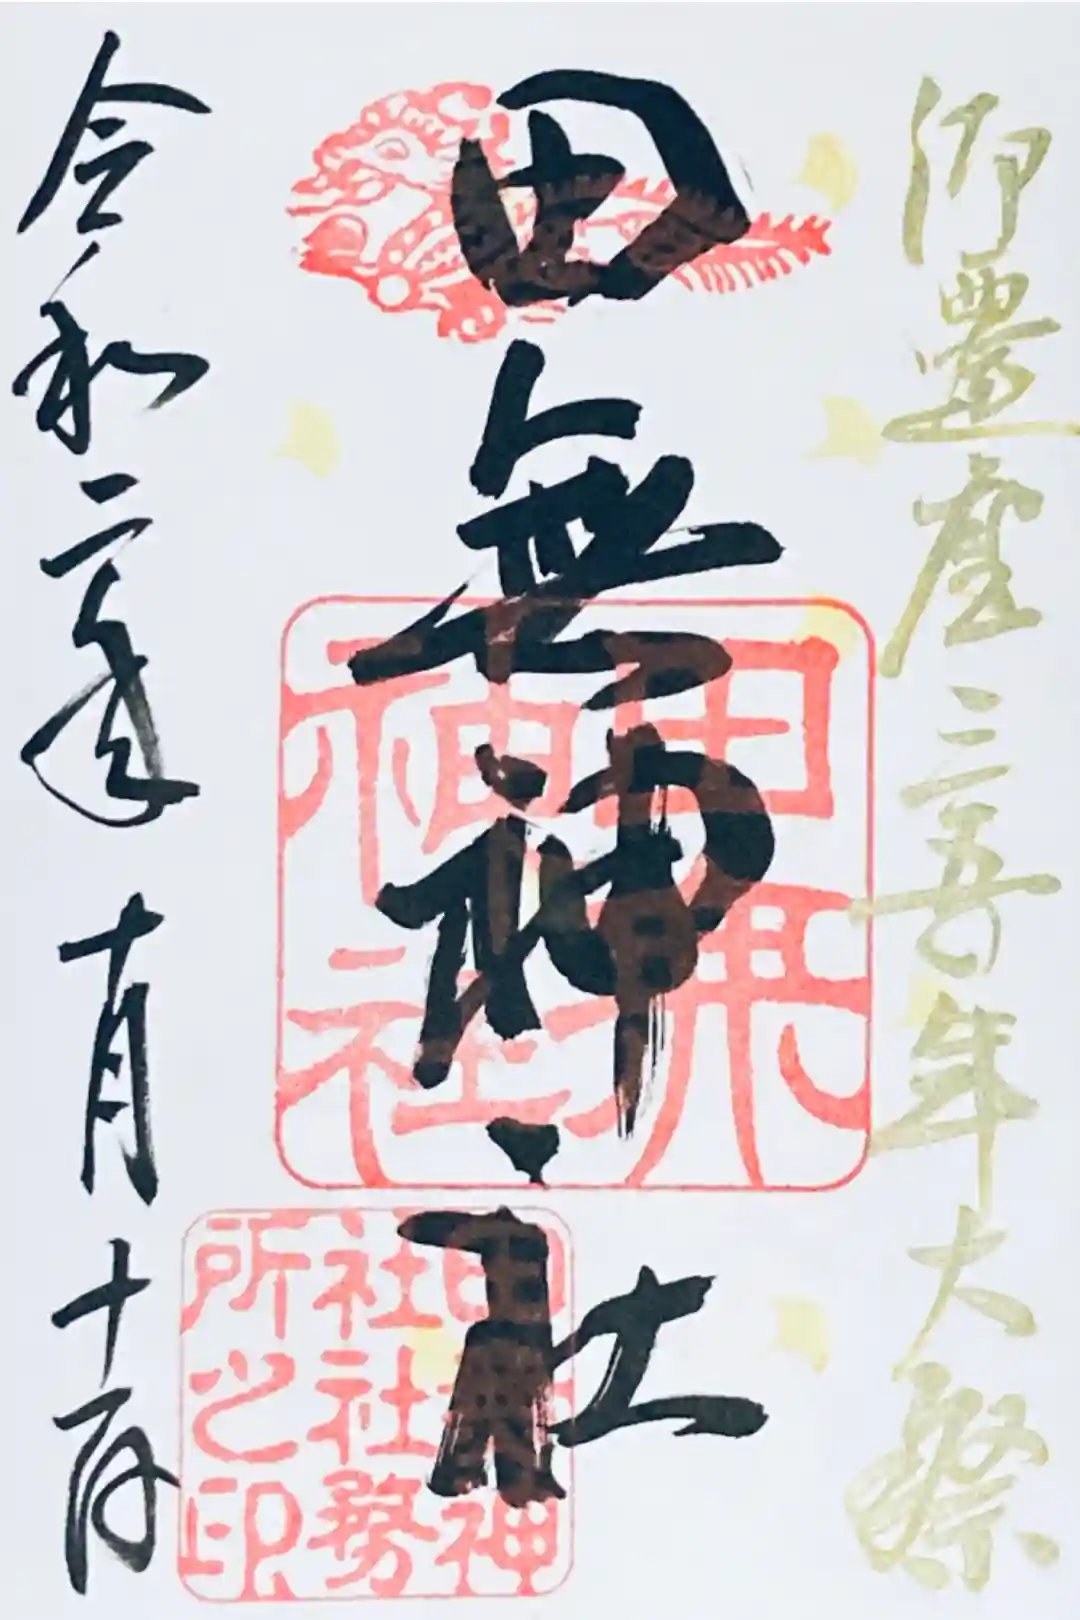 御遷座三五〇年大祭
田無神社
田無
神社
田無神
社社務
所之印
令和二年 十月 十一日